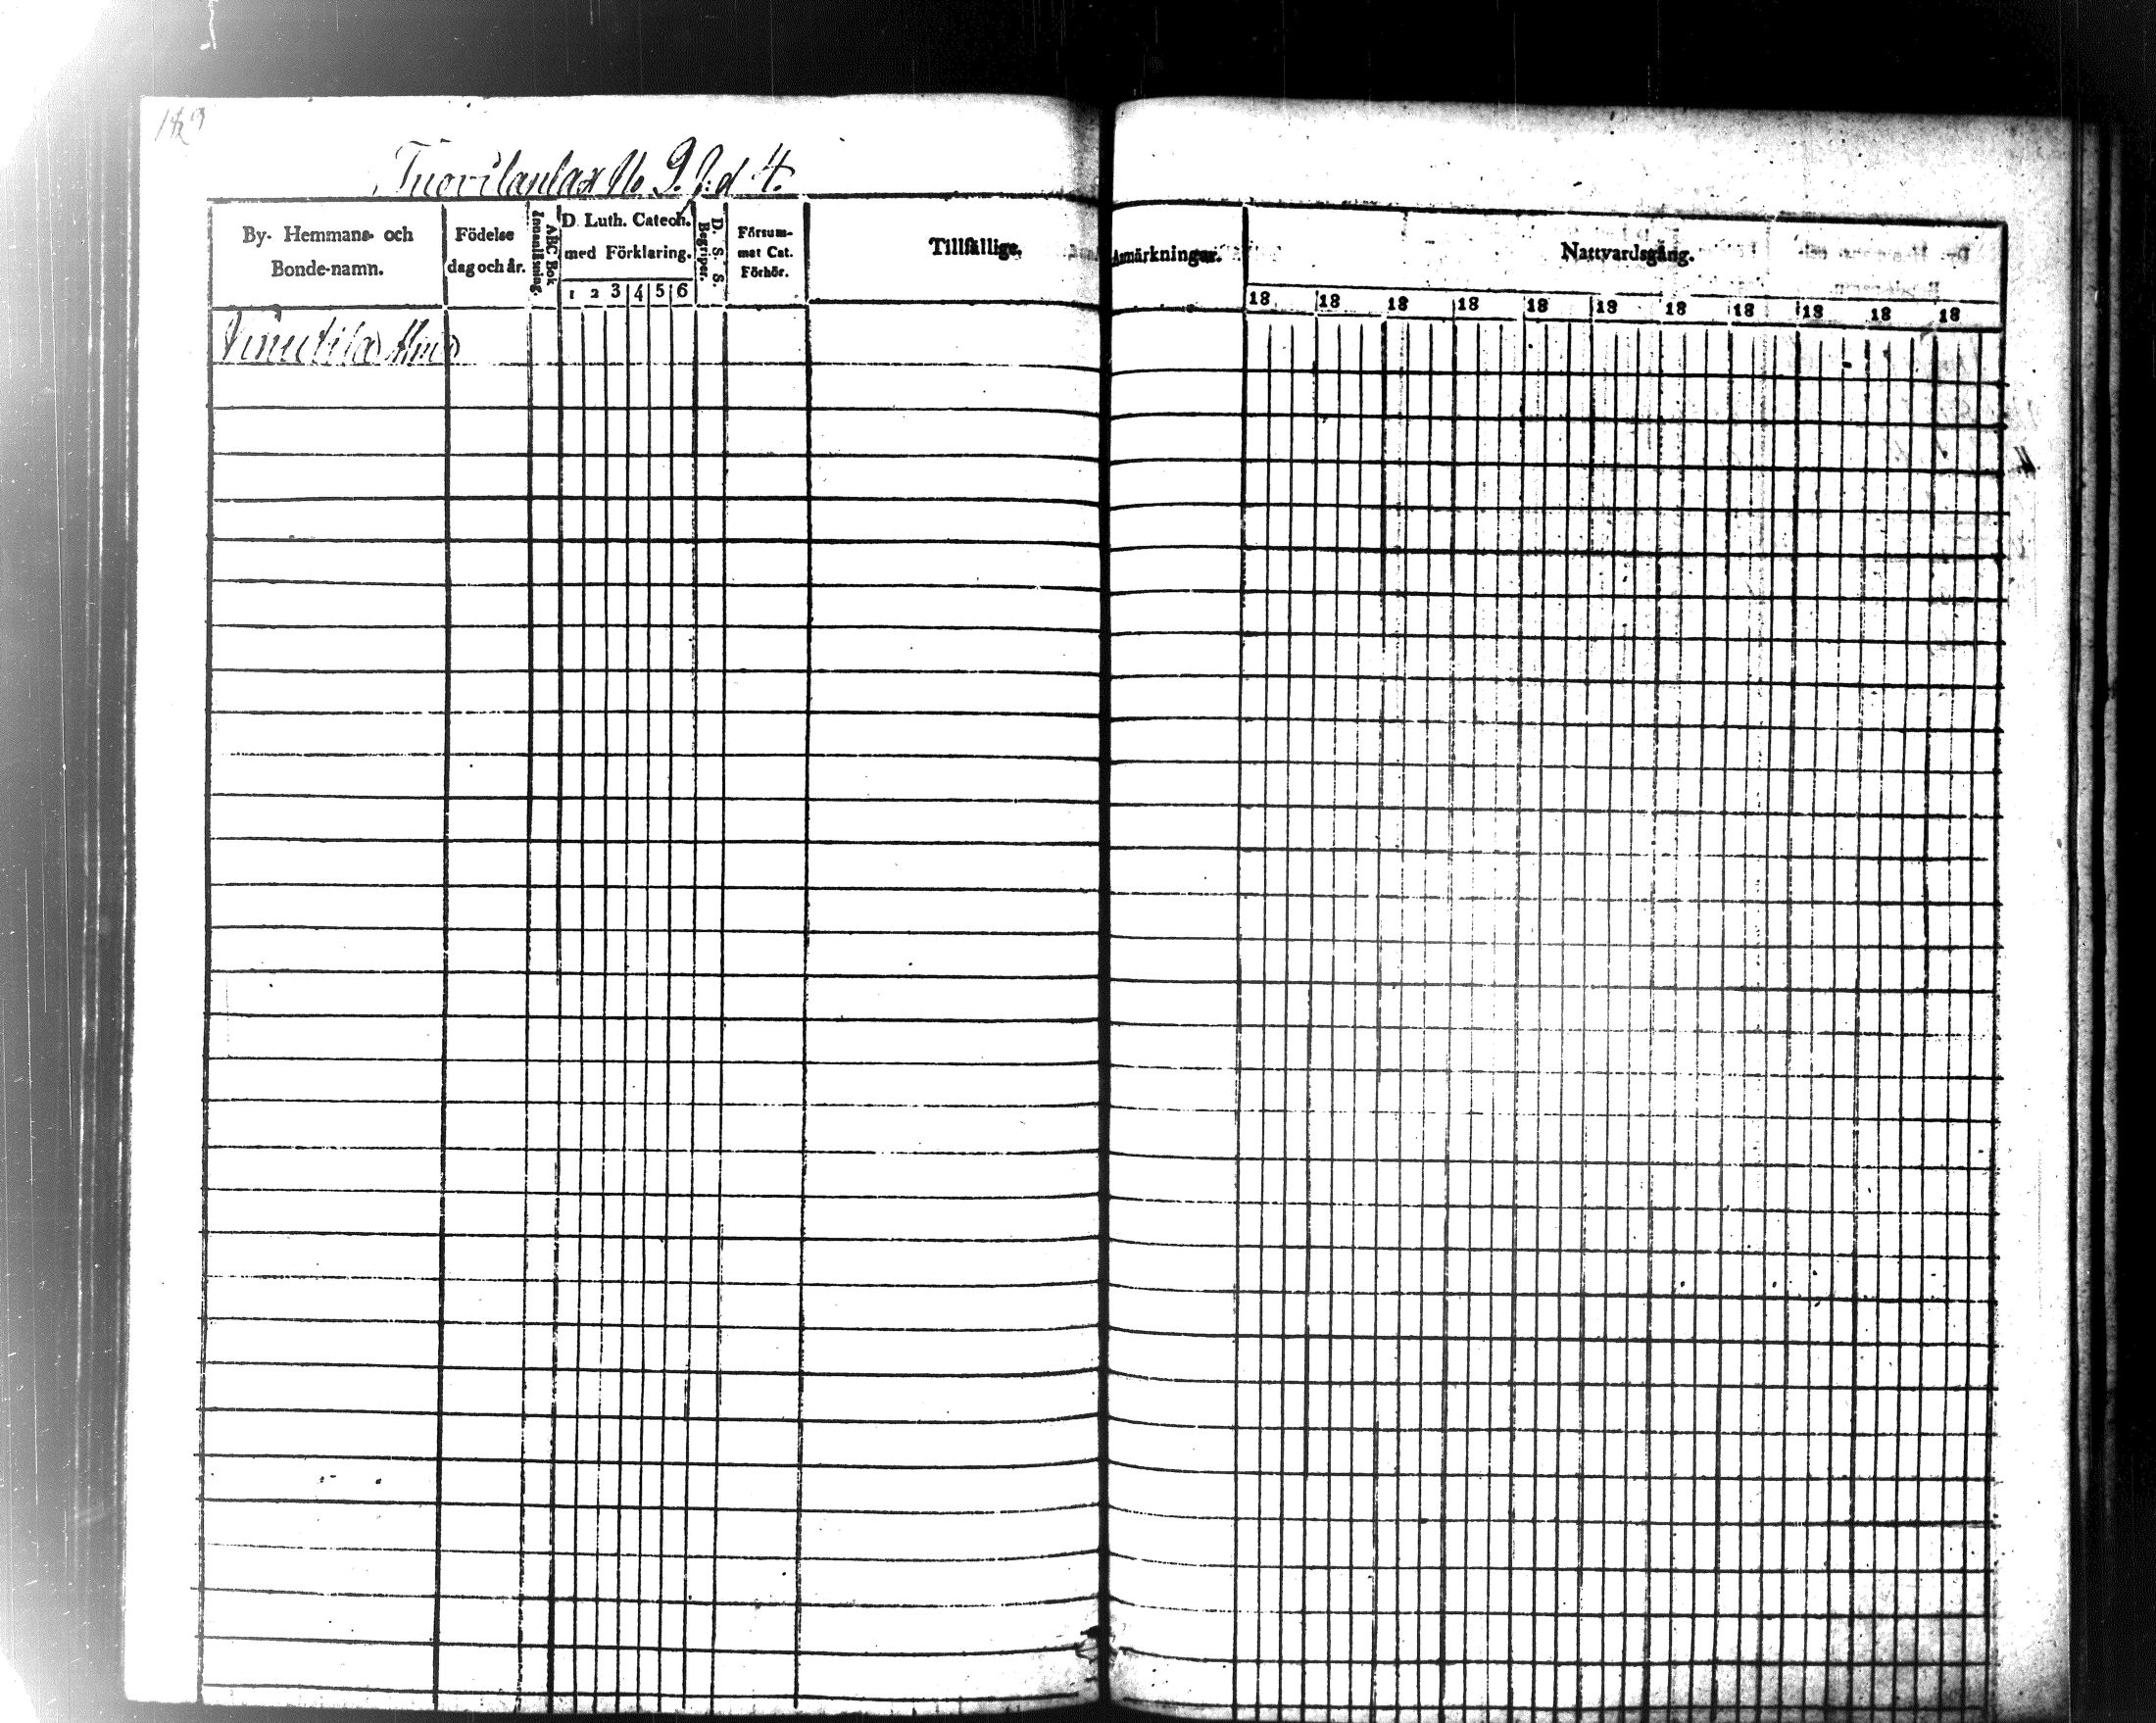 Tuovilanlax No 9.
By- Hemmans- och Bonde-namn.
Födelse dag och år.
Innanläsning.
ABC Bok
D. Luth. Catech. med Förklaring.
1 2 3 4 5 6
Begriper.
D. S. S.
Försum-
mat Cat.
Förhör.
Tillfällige
Anmärkningar.
Nattvardsgång.
18 18 18 18 18 18 18 18 18 18 18